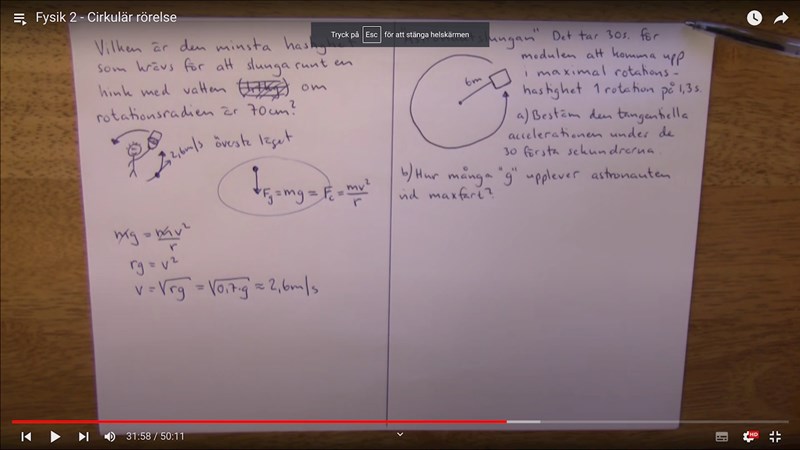 Fysik 2 - Cirkulär rörelse
Tryck på Esc för att stänga helskärmen
Vilken är den minsta hastighet
som krävs för att slunga runt en
hink med vatten om
rotationsradien är 70cm?
2,6m/s
översta läget
Fg = mg = Fc = mv²/r
mg = mv²/r
rg = v²
v = √rg = √0,7·g ≈ 2,6m/s
slungan" Det tar 30s. för
modulen att komma upp
i maximal rotations-
hastighet 1 rotation på 1,3s.
6m
a) Bestäm den tangentiella
accelerationen under de
30 första sekundrarna.
b) Hur många "g" upplever astronauten
vid maxfart?
31:58 / 50:11
HD